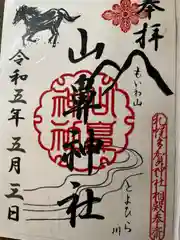 奉拝
もいわ山
札幌多賀神社相殿奉斎
山鼻神社
とよひら川
令和五年五月三日